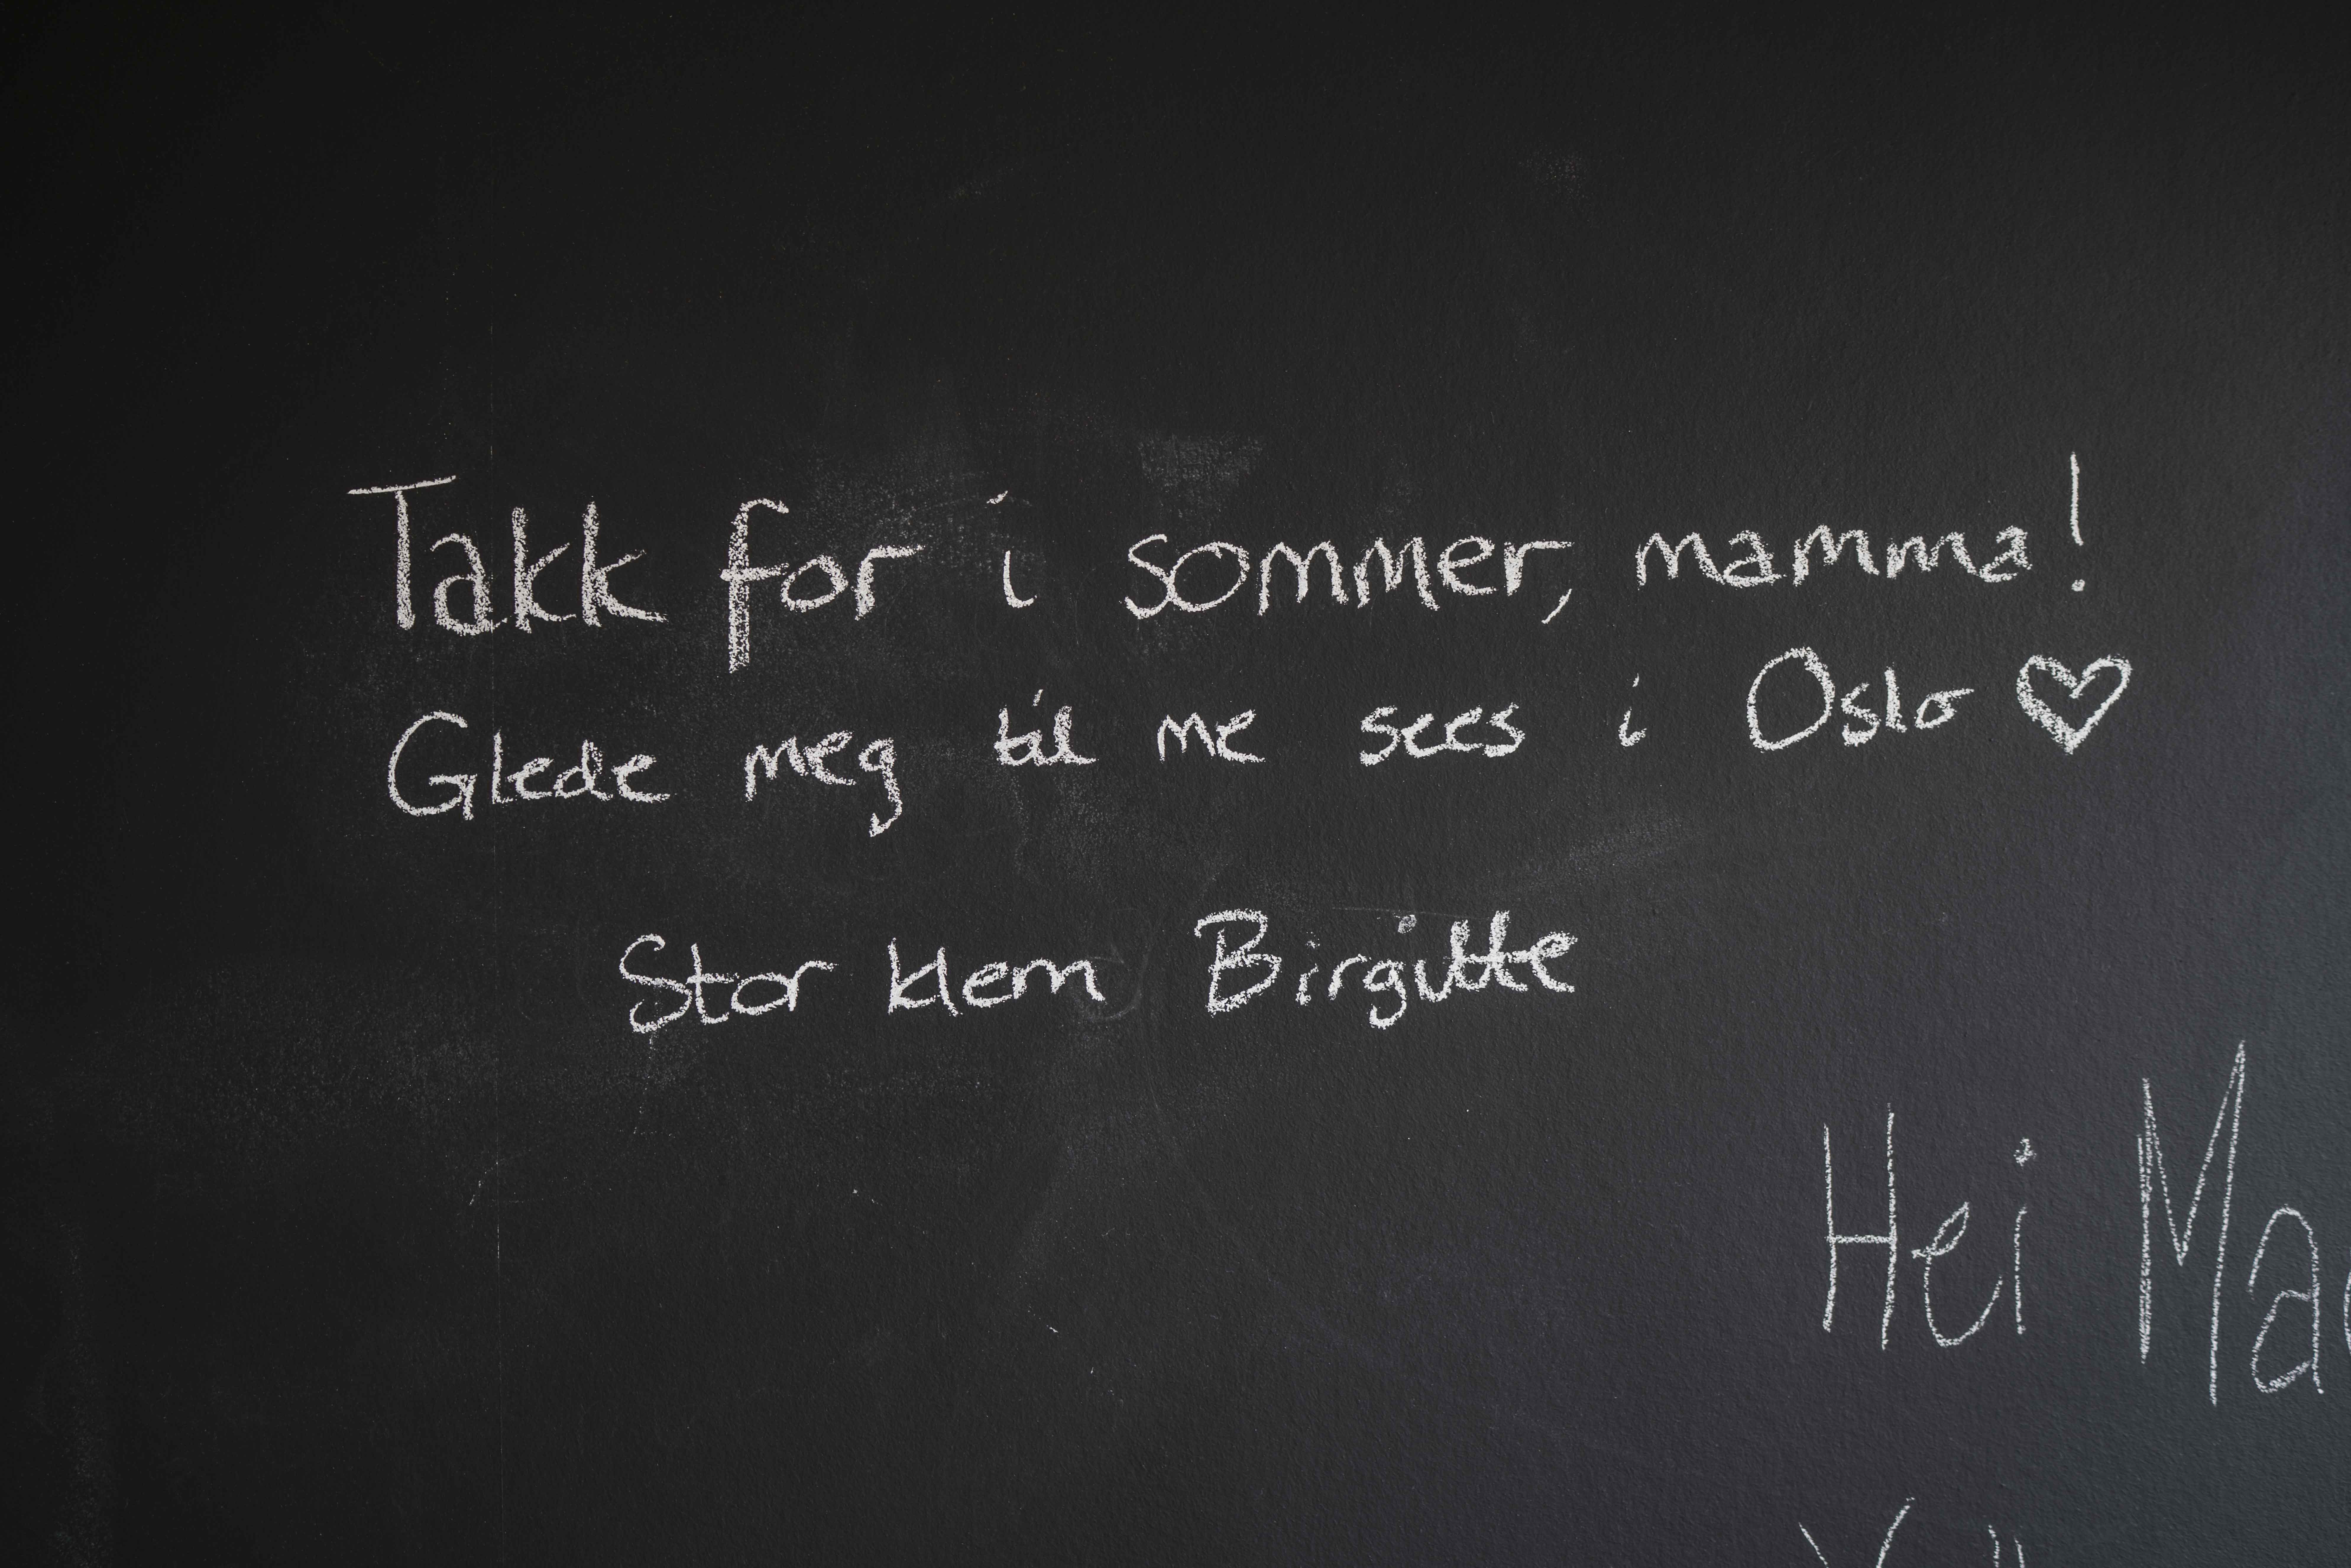 Takk for i sommer, mamma!
Glede meg til me sees i Oslo ♡
Stor klem Birgitte
Hei